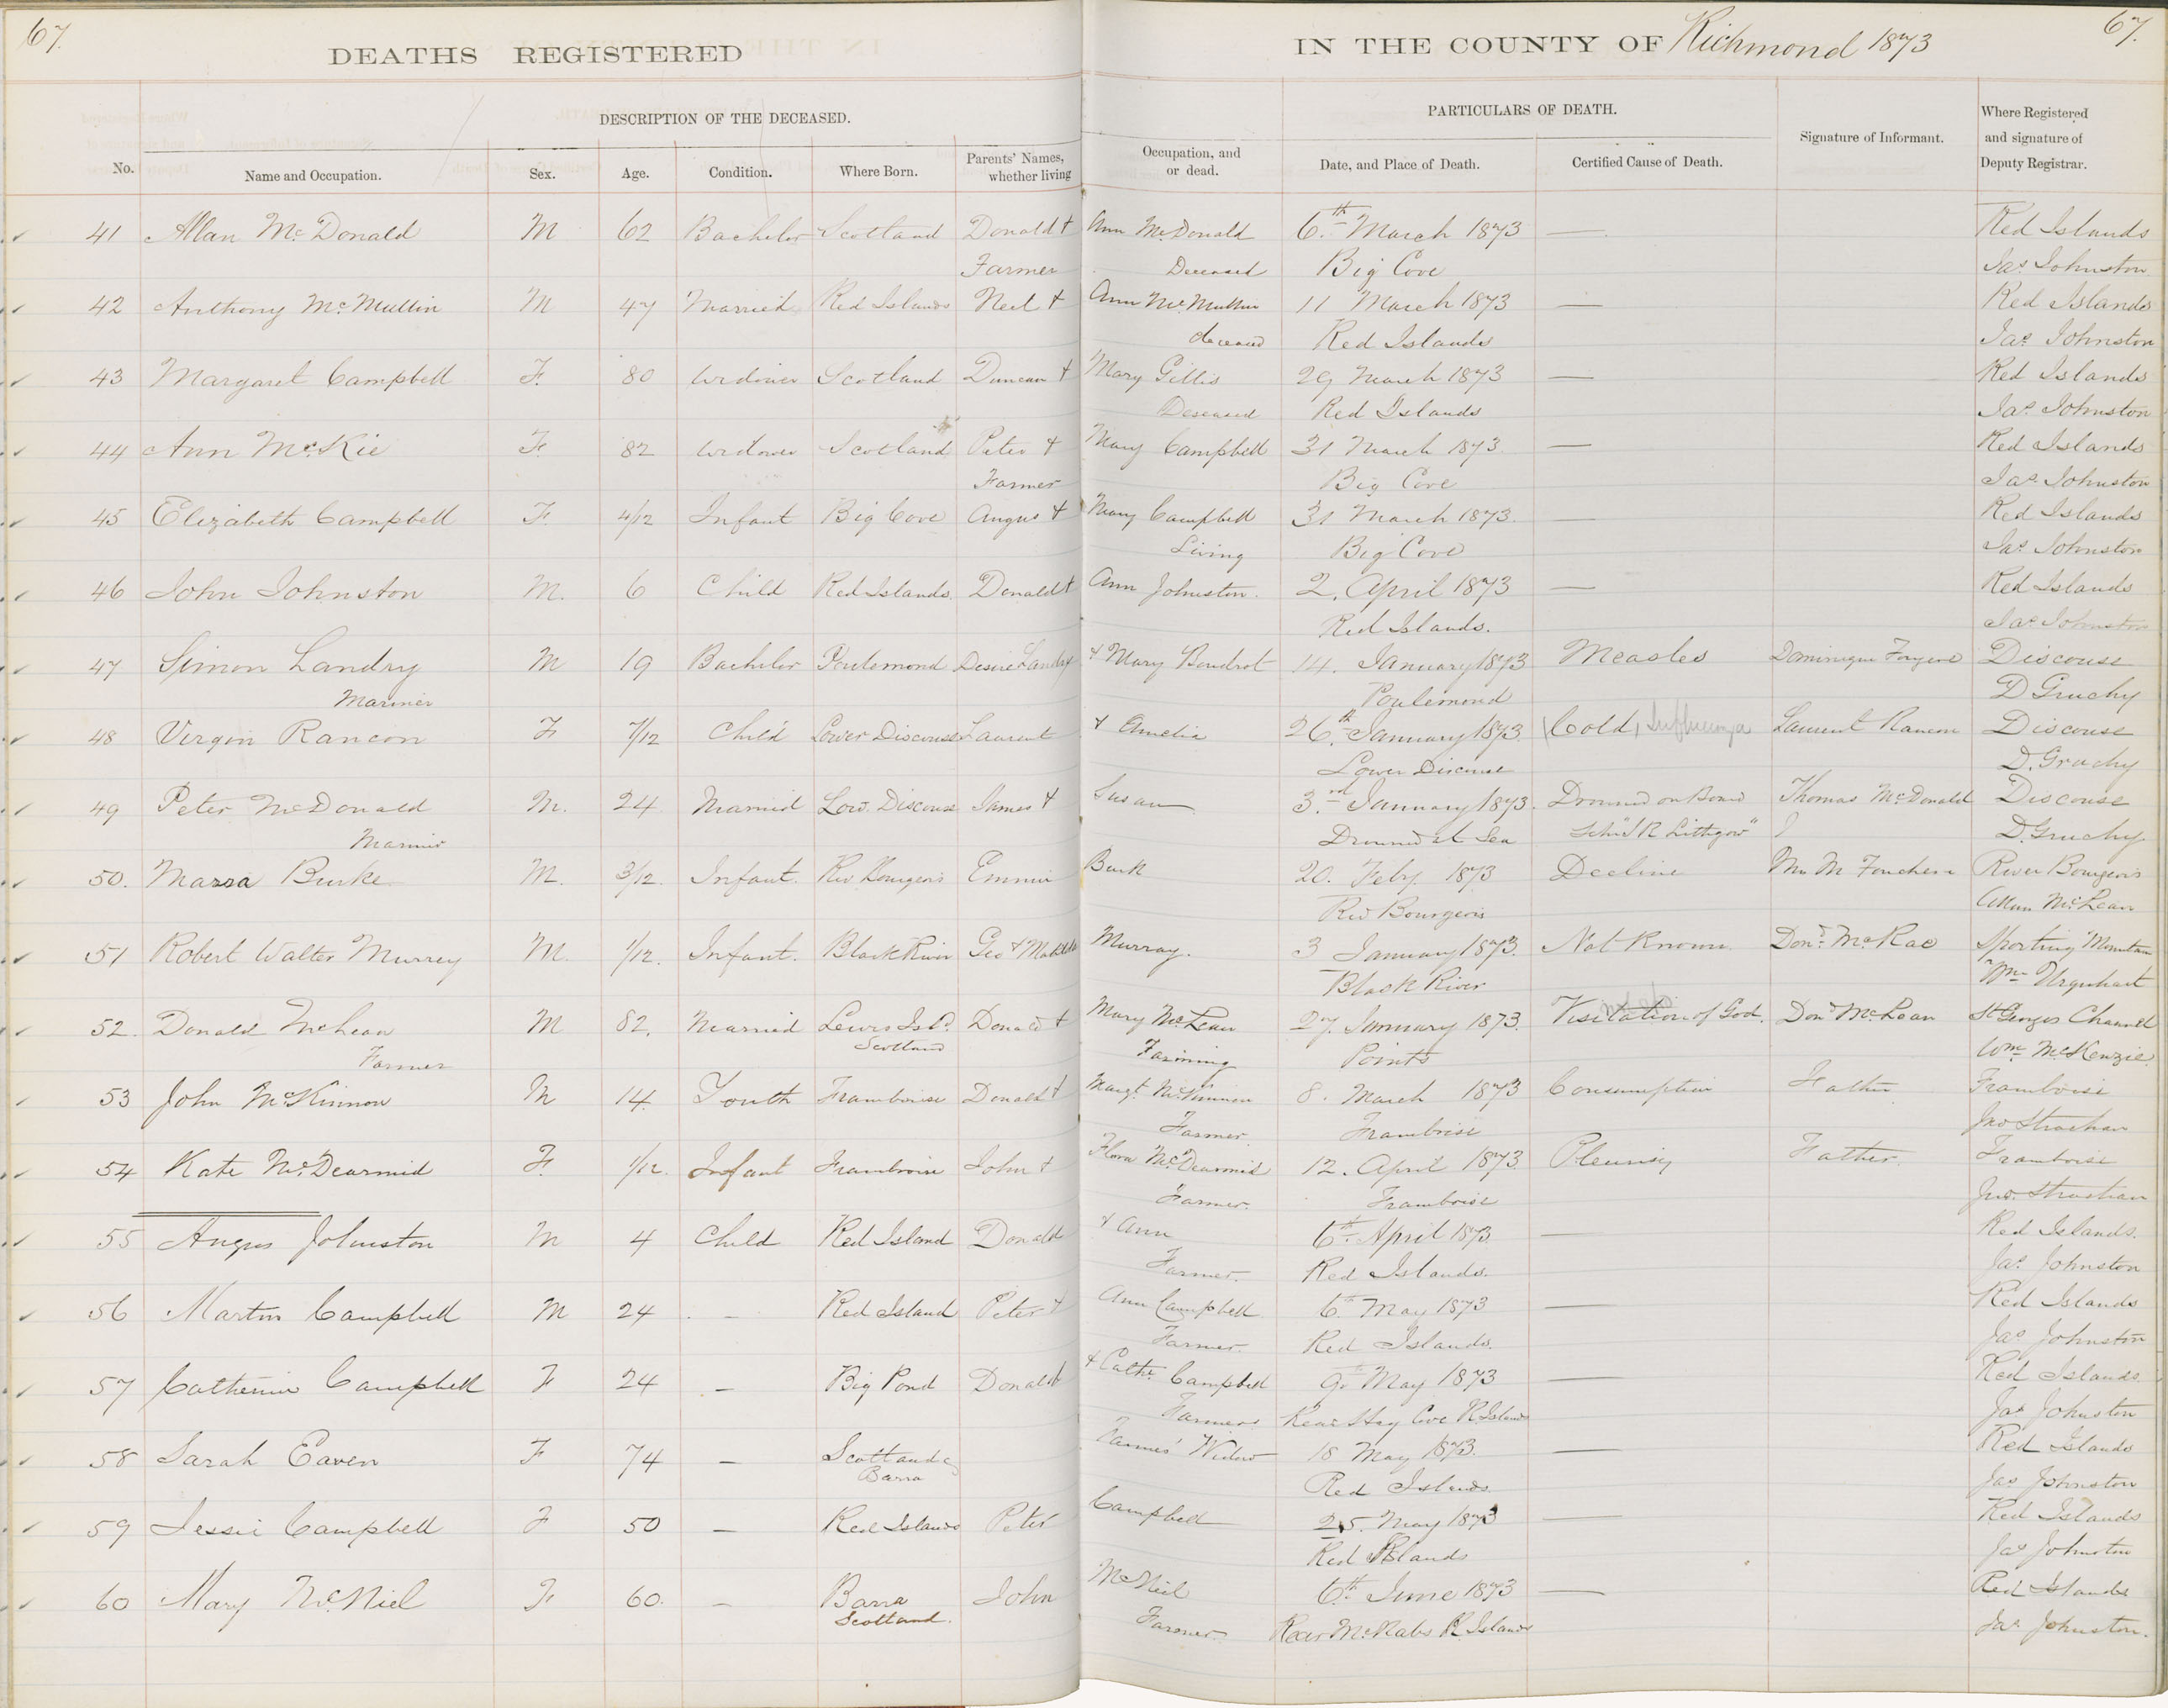 67.
67.
DEATHS REGISTERED IN THE COUNTY OF Richmond 1873
DESCRIPTION OF THE DECEASED.
PARTICULARS OF DEATH.
No. Name and Occupation. Sex. Age. Condition. Where Born. Parents' Names, whether living Occupation, and or dead. Date, and Place of Death. Certified Cause of Death. Signature of Informant. Where Registered and signature of Deputy Registrar.
41 Allan McDonald M 62 Bachelor Scotland Donald + Ann McDonald 6.th March 1873 — Red Islands
Farmer Deceased Big Cove Jas Johnston
42 Anthony McMullin M 47 Married Red Islands Neil + Ann McMullin 11 March 1873 — Red Islands
deceased Red Islands Jas Johnston
43 Margaret Campbell F. 80 Widower Scotland Duncan + Mary Gillis 29 March 1873 — Red Islands
Deseased Red Islands Jas Johnston
44 Ann McKie F. 82 Widower Scotland Peter + Mary Campbell 31 March 1873. — Red Islands
Farmer Big Cove Jas Johnston
45 Elizabeth Campbell F. 4/12 Infant Big Cove Angus + Mary Campbell 31 March 1873. — Red Islands
Living Big Cove Jas Johnston
46 John Johnston M. 6 Child Red Islands Donald + Ann Johnston. 2. April 1873 — Red Islands
Red Islands. Jas Johnston
47 Simon Landry M 19 Bachelor Poulemond Desire Landry + Mary Boudrot 14. January 1873 Measles Dominique Forgere Discouse
Mariner Poulemond D Gruchy
48 Virgin Rancon F 7/12 Child Lower Discouse Laurent + Amelia 26.th January 1873. (Cold) Influenza Laurent Rancon Discouse
Lower Discouse D. Gruchy
49 Peter McDonald M. 24 Married Low. Discouse James + Susan 3.rd January 1873. Drowned on Board Thomas McDonald Discouse
Mariner Drowned at Sea Schr "J R Lithgow" D. Gruchy
50. Massa Burke M. 3/12 Infant. Riv Bourgeois Emmin Burk 20. Feby. 1873 Decline River Bourgeois
Riv Bourgeois Allan McLean
51 Robert Walter Murrey M. 1/12. Infant. Black River Geo + Matilda Murray. 3 January 1873. Not Known. Dond. McRae Sporting Mountain
Black River Wm Urquhart
52. Donald McLean M 82. Married Lewis Isld. Donald + Mary McLean 27. January 1873. Visitation of God. Dond McLean St Georges Channel
Farmer Scotland Farming Points Wm McKenzie.
53 John McKinnon M 14. Youth Framboise Donald + Margt. McKinnon 8. March 1873 Consumption Father Framboise
Farmer. Framboise Jno Strachan
54 Kate McDearmid F. 1/12. Infant Framboise John + Flora McDearmid 12. April 1873. Pleurisy Father Framboise
Farmer. Framboise Jno. Strachan
55 Angus Johnston M 4 Child Red Island Donald + Ann 6th. April 1873. — Red Islands.
Farmer. Red Islands. Jas Johnston
56 Martin Campbell M 24 — Red Island Peter + Ann Campbell 6.th May 1873 — Red Islands
Farmer. Red Islands. Jas Johnston
57 Catherine Campbell F 24 — Big Pond Donald + Cathe. Campbell 9.th May 1873 — Red Islands.
Farmer Rear Hay Cove R. Islands Jas Johnston
58 Sarah Eaven F 74 — Scotland Farmer' Widow 18 May 1873. — Red Islands
Barra Red Islands. Jas Johnston
59 Jessie Campbell F 50 — Red Islands Peter Campbell 25. May 1873 — Red Islands
Red Islands Jas Johnston
60 Mary McNiel F 60. — Barra John McNeil 6.th June 1873 — Red Islands
Scotland. Farmer. Rear McNabs R Islands Jas Johnston.